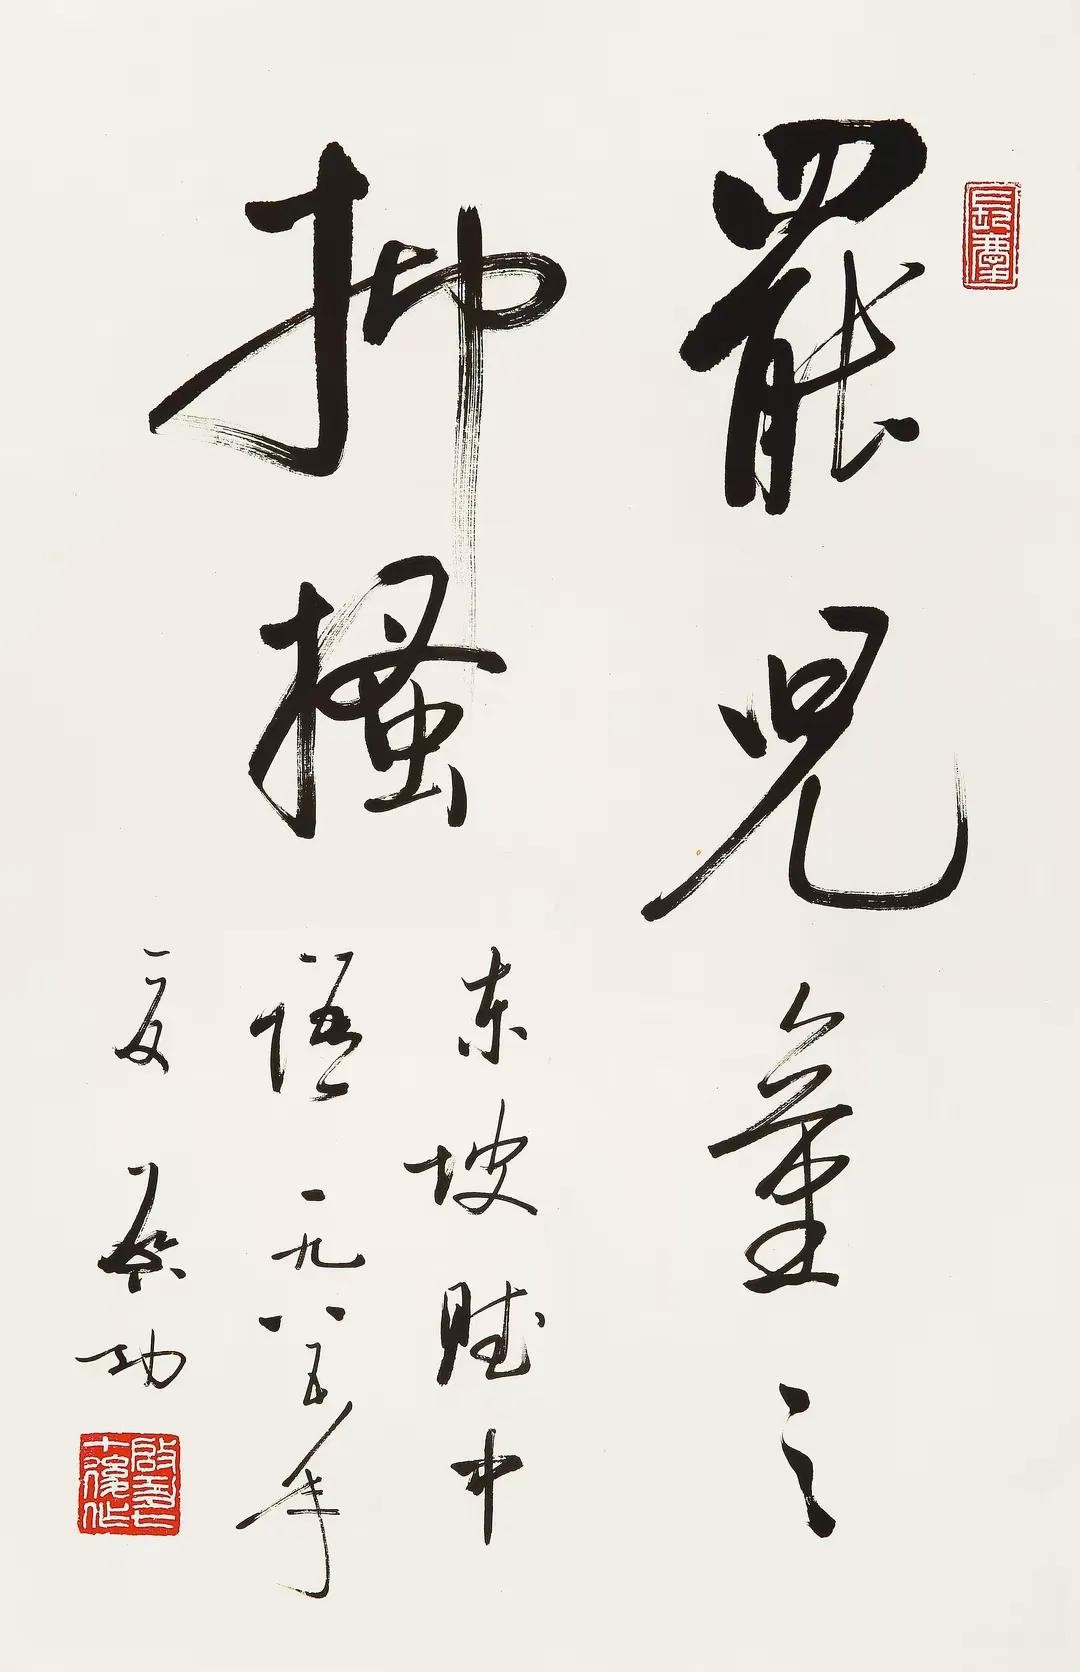 罷兒童之
抑搔
东坡賦中
語一九八五年
夏启功
啟功七
十後作